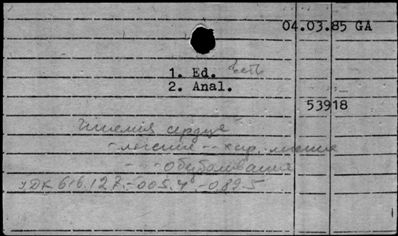 04.03.85 GA
1. Ed. есть
2. Anal.
53918
Ишемия сердца
- лечение -- хир. лечение
- - обезболивание
УДК 616.127-005.4-089.5